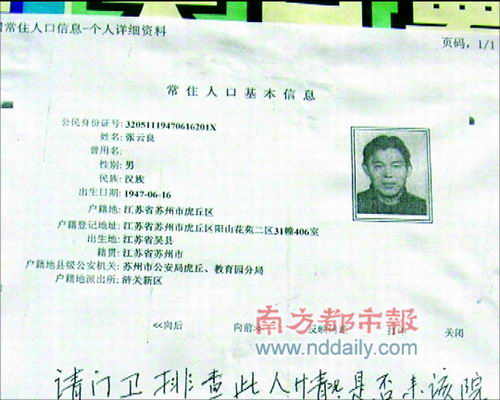 常住人口信息-个人详细资料 页码, 1/1
常住人口基本信息
公民身份证号: 32051119470616201X
姓名: 张云良
曾用名:
性别: 男
民族: 汉族
出生日期: 1947-06-16
户籍地: 江苏省苏州市虎丘区
户籍登记地址: 江苏省苏州市虎丘区阳山花苑二区31幢406室
出生地: 江苏省吴县
籍贯: 江苏省苏州市
户籍地县级公安机关: 苏州市公安局虎丘、教育园分局
户籍地派出所: 浒关新区
<<向后 向前 关闭
南方都市報
www.nddaily.com
请门卫排查此人情是否来该院